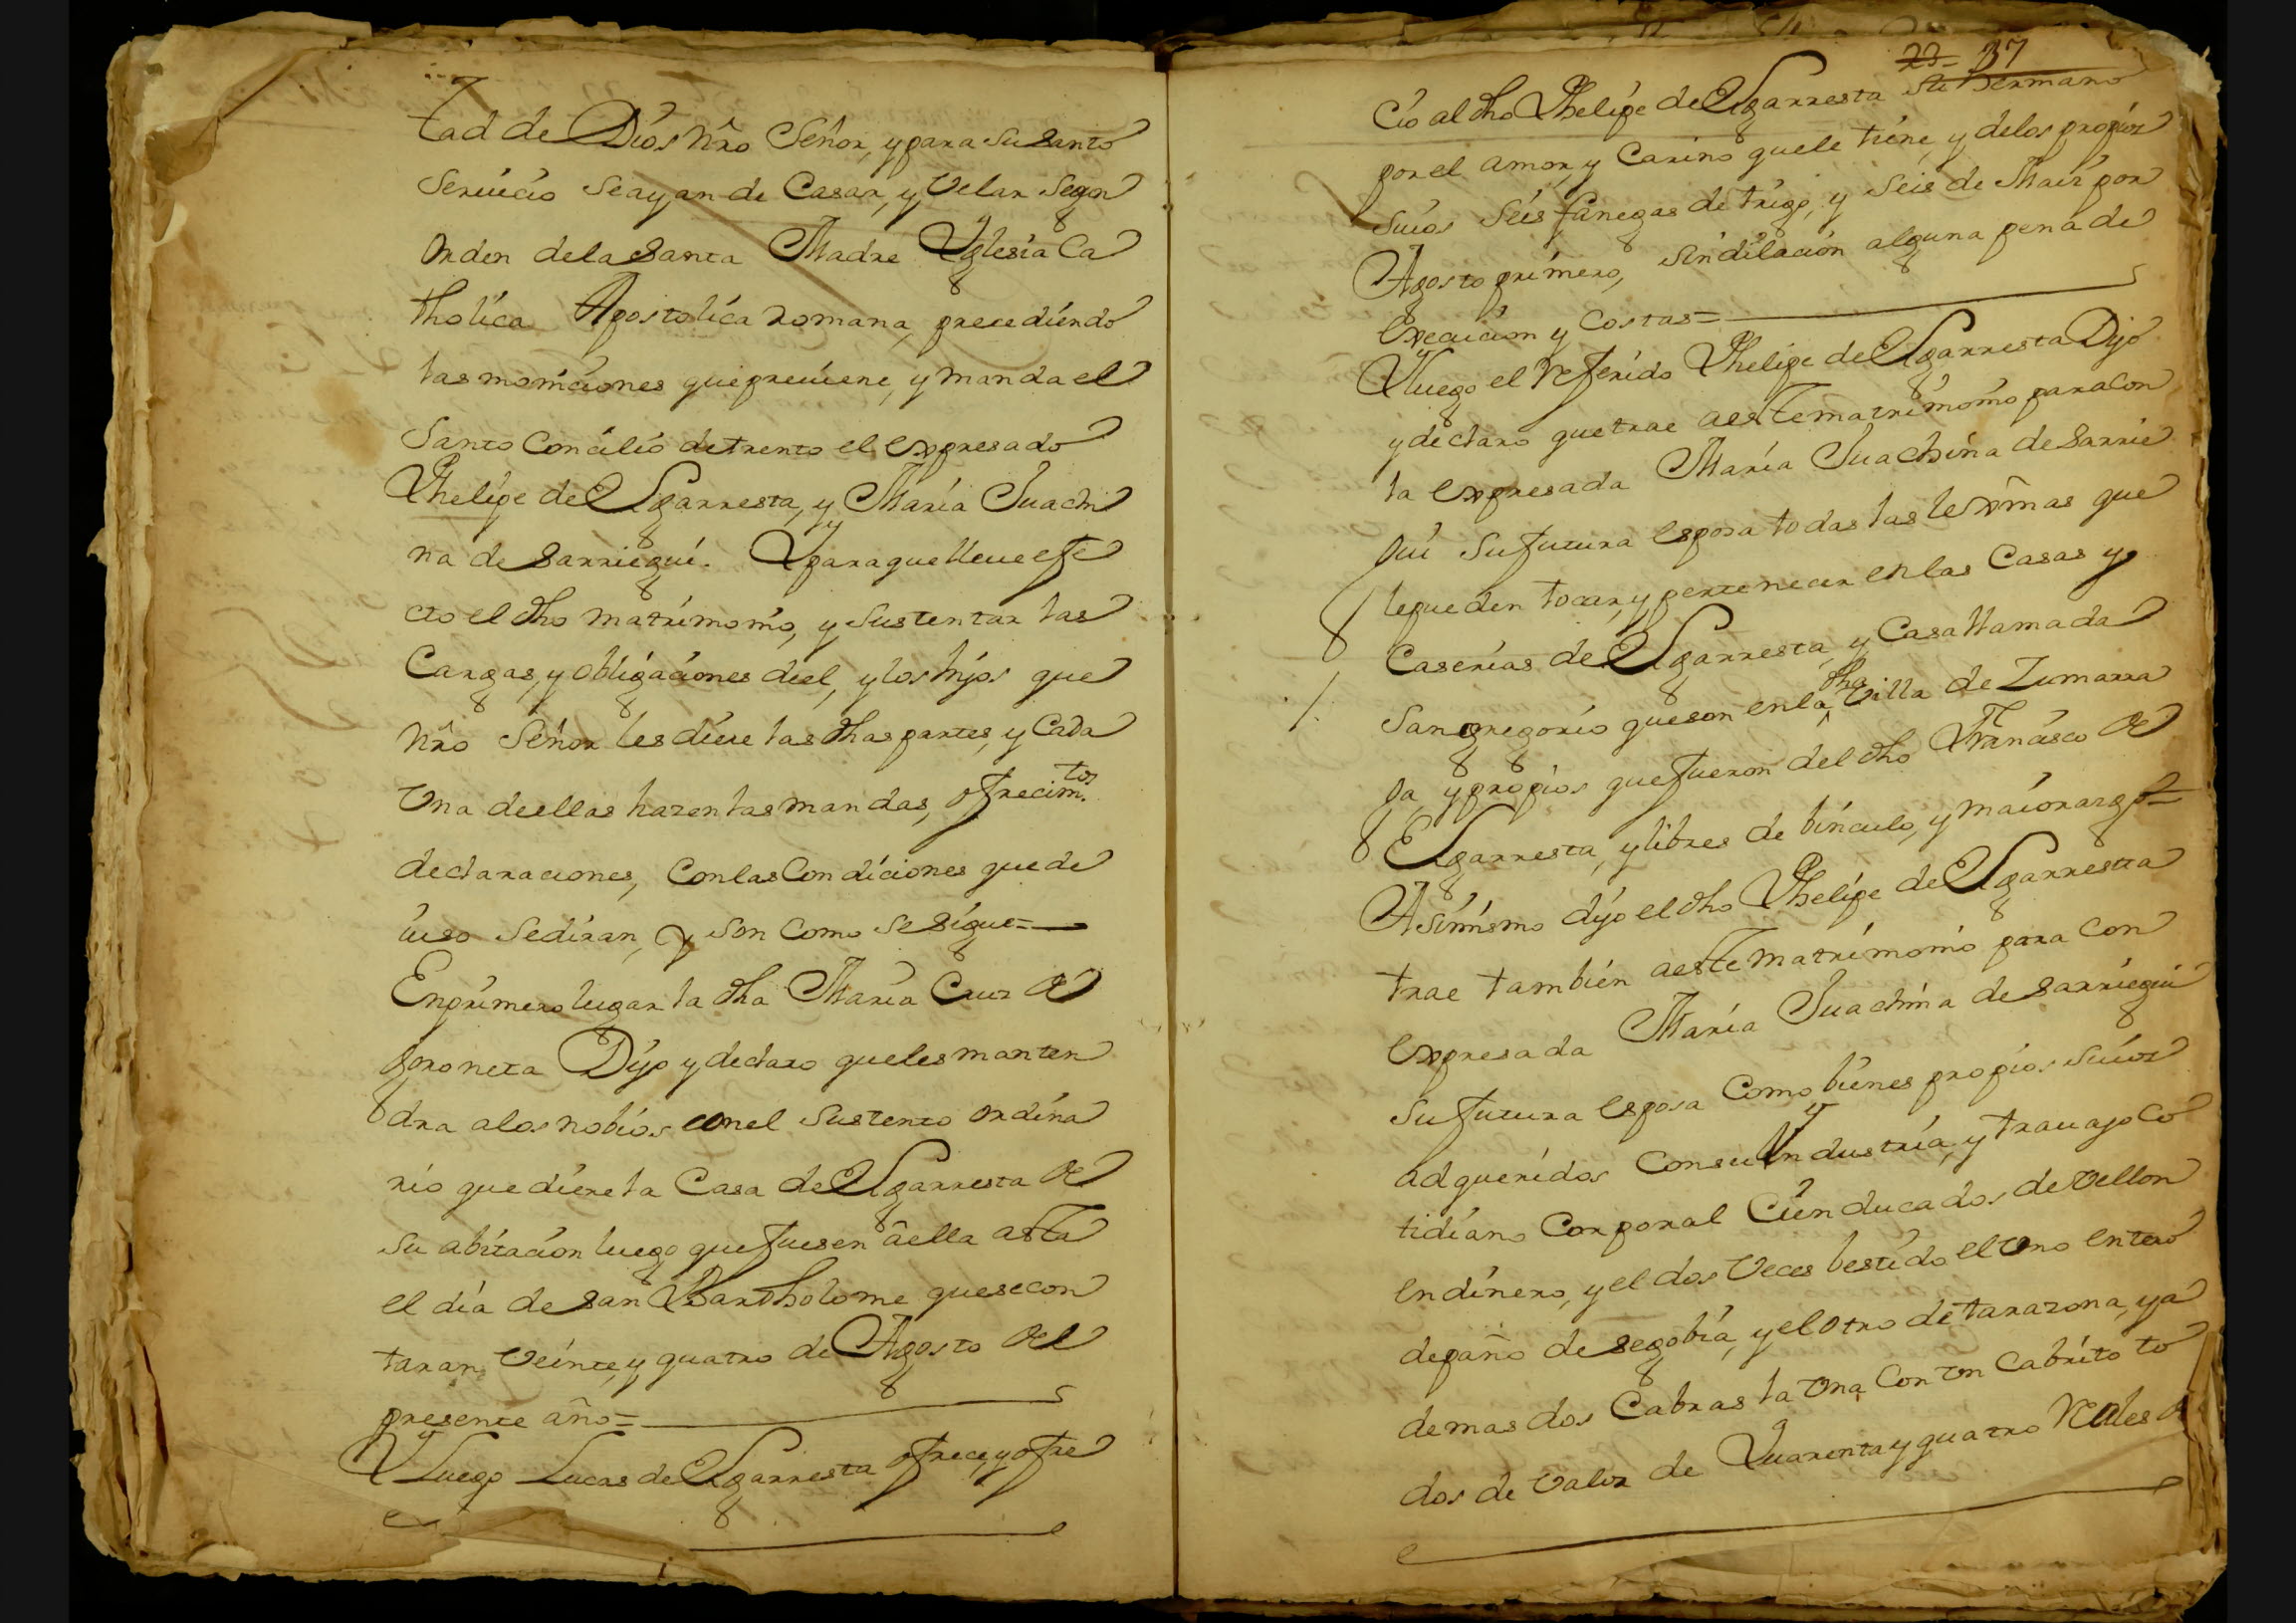 tad de Dios nro Señor, y para su santo
Seruicio Seayan de Casar, y Velar Segun
orden dela Santa Madre Yglesia Ca
tholica Apostolica Romana, precediendo
las moniciones que preuiene, y manda el
Santo Concilio de trento el expresado
Phelipe de Elgarresta, y Maria Juachi
na de Sarriegui. Y para que lleue efe
cto el dho matrimonio, y Sustentar las
Cargas, y obligaciones deel, y los hijos que
nro Señor les diere las dhas partes, y Cada
Una deellas hazen las mandas, ofrecim.tos
declaraciones, Con las Condiciones que de
iuso Sediran, y son Como se sigue=
En primero lugar la dha Maria Cruz de
dixo y declaro que les manten
dra a los nobios con el Sustento ordina
rio que diere la Casa de Elgarresta de
Su abitacion luego que fuesen â ella asta
el dia de san Bartholome que se con
taran Veinte, y quatro de Agosto del
presente año=
Y luego Lucas de Elgarresta ofrece, y ofre
23= 37
Cio al dho Phelipe de Elgarresta Su Hermano
por el amor, y Carino que le tiene, y delos propios
Suios Seis fanegas de trigo, y Seis de Maiz por
Agosto primero, sin dilacion alguna pena de
execucion y Costas=
Y luego el referido Phelipe de Elgarresta Dijo
y declaro que trae a este matrimonio para con
la expresada Maria Juachina de Sarrie
gui Su futura esposa todas las lexmas que
le pueden tocar, y pertenecer en las Casas y
Caserias de Elgarresta, y Casa llamada
San gregorio que son en la dha Villa de Zumarra
ga y propios que fueron del dho Francisco de
Elgarresta, y libres de binculo, y maiorazgo=
Asimismo dijo el dho Phelipe de Elgarresta
trae tambien a este matrimonio para con
expresada Maria Juachina de Sarriegui
Su futura esposa Como bienes propios Suios
adqueridos Con su Yndustria, y trauajo Co
tidiano Corporal Cien ducados de Vellon
en dinero, y el dos Veces bestido el Uno entero
de paño de Segobia, y el otro de tarazona, y a
demas dos Cabras la Una Con Un Cabrito to
dos de Valor de Quarenta y quatro Reales